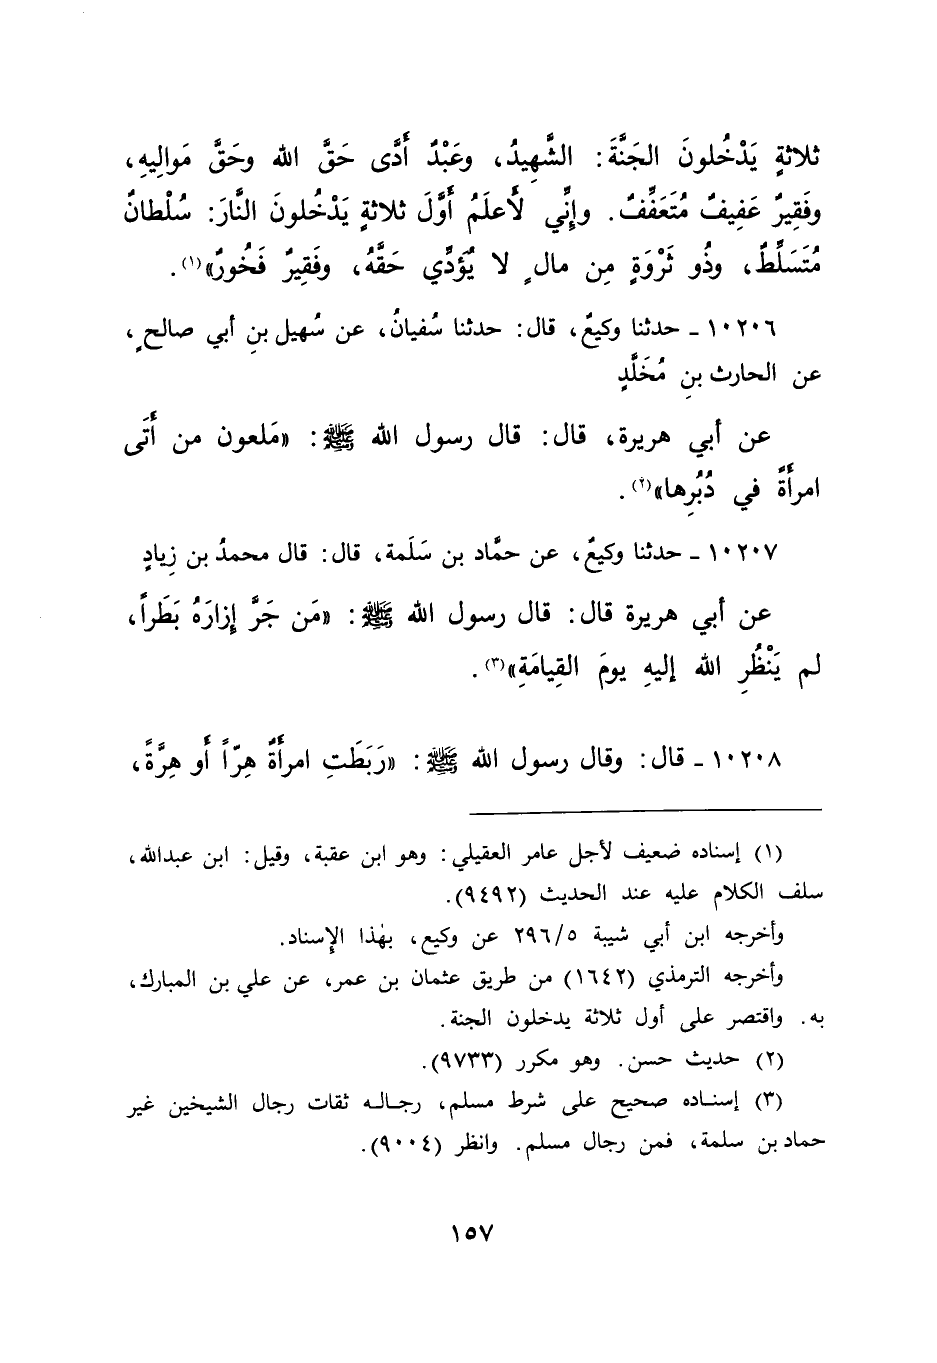 ثلاثةٍ يَدْخُلونَ الجَنَّةَ: الشَّهِيدُ، وعَبْدٌ أَدَّى حَقَّ الله وحَقَّ مَوالِيهِ،
وفَقِيرٌ عَفِيفٌ مُتَعَفِّفٌ. وإِنِّي لَأَعلَمُ أَوَّلَ ثلاثةٍ يَدْخُلونَ النَّارَ: سُلْطانٌ
مُتَسَلِّطٌ، وذُو ثَرْوَةٍ مِن مالٍ لا يُؤَدِّي حَقَّهُ، وفَقِيرٌ فَخُورٌ»(١).
١٠٢٠٦ ـ حدثنا وكيعٌ، قال: حدثنا سُفيانُ، عن سُهيل بنِ أبي صالحٍ،
عن الحارث بنِ مُخَلَّدٍ
عن أبي هريرة، قال: قال رسول الله ﷺ: «مَلعون من أَتَى
امرأَةً في دُبُرِها»(٢).
١٠٢٠٧ ـ حدثنا وكيعٌ، عن حمَّاد بن سَلَمة، قال: قال محمدُ بن زِيادٍ
عن أبي هريرة قال: قال رسول الله ﷺ: «مَن جَرَّ إِزارَهُ بَطَراً،
لم يَنْظُرِ الله إليهِ يومَ القِيامَةِ»(٣).
١٠٢٠٨ ـ قال: وقال رسول الله ﷺ: «رَبَطَتِ امرأَةٌ هِرّاً أَو هِرَّةً،
(١) إسناده ضعيف لأجل عامر العقيلي: وهو ابن عقبة، وقيل: ابن عبدالله،
سلف الكلام عليه عند الحديث (٩٤٩٢).
وأخرجه ابن أبي شيبة ٢٩٦/٥ عن وكيع، بهٰذا الإِسناد.
وأخرجه الترمذي (١٦٤٢) من طريق عثمان بن عمر، عن علي بن المبارك،
به. واقتصر على أول ثلاثة يدخلون الجنة.
(٢) حديث حسن. وهو مكرر (٩٧٣٣).
(٣) إسناده صحيح على شرط مسلم، رجاله ثقات رجال الشيخين غير
حماد بن سلمة، فمن رجال مسلم. وانظر (٩٠٠٤).
١٥٧